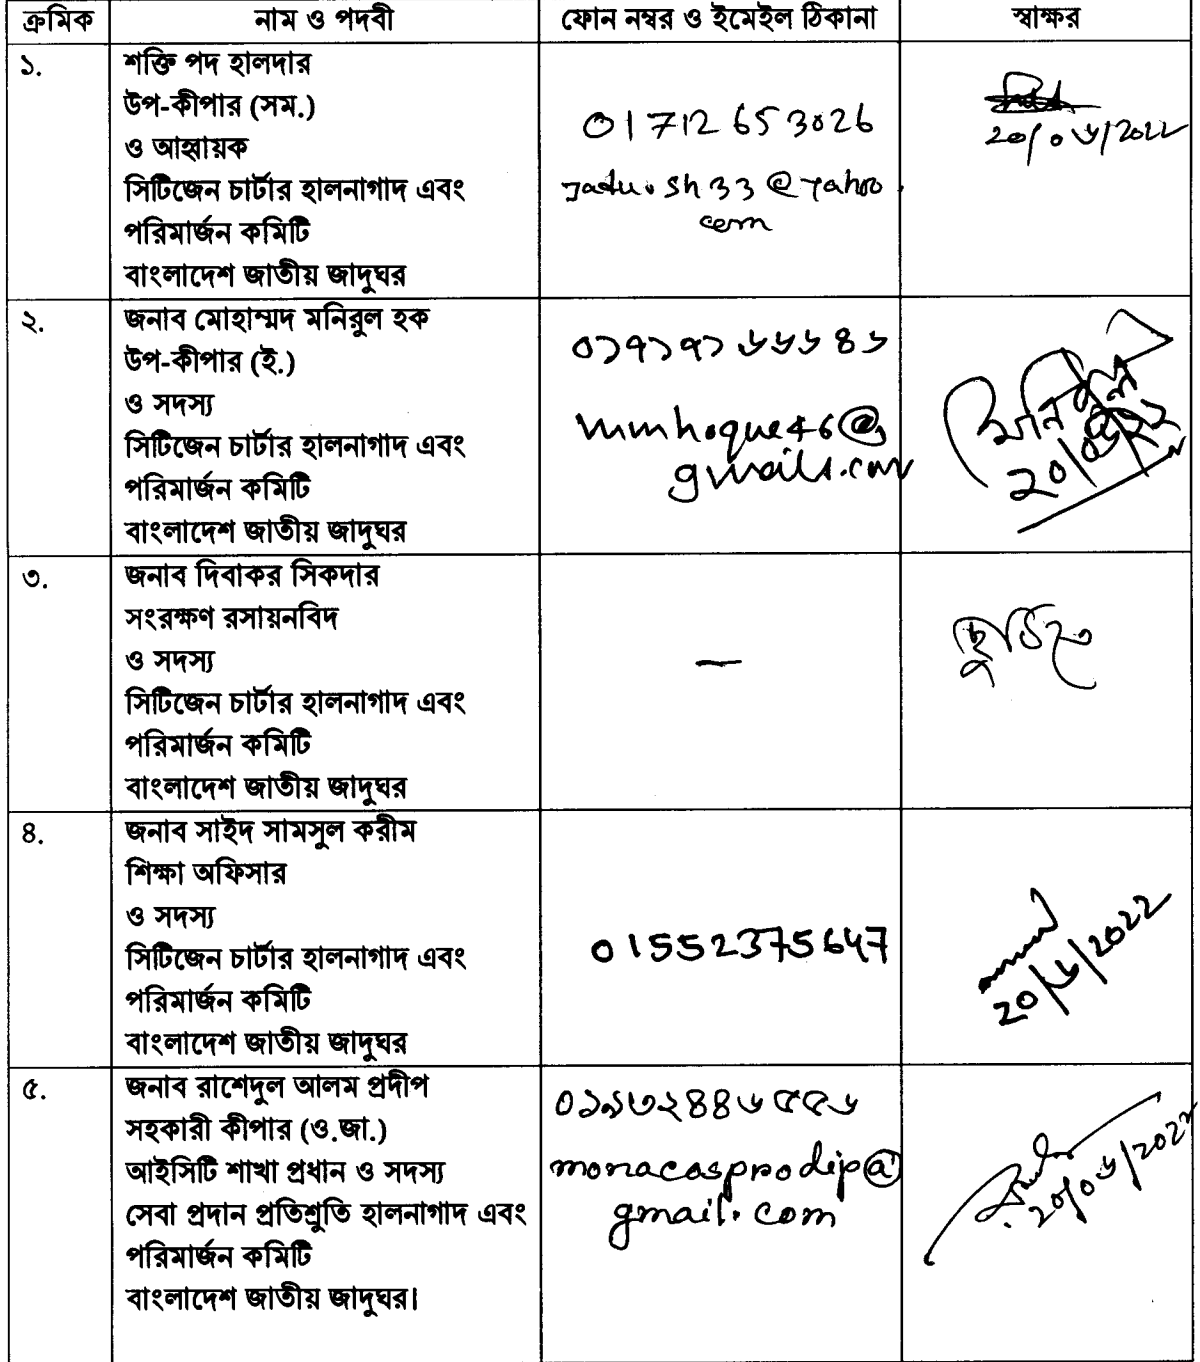 ক্রমিক নাম ও পদবী ফোন নম্বর ও ইমেইল ঠিকানা স্বাক্ষর
১.
শক্তি পদ হালদার
উপ-কীপার (সম.)
ও আহ্বায়ক
সিটিজেন চার্টার হালনাগাদ এবং
পরিমার্জন কমিটি
বাংলাদেশ জাতীয় জাদুঘর
01712653026
20/০৬/2022
২.
জনাব মোহাম্মদ মনিরুল হক
উপ-কীপার (ই.)
ও সদস্য
সিটিজেন চার্টার হালনাগাদ এবং
পরিমার্জন কমিটি
বাংলাদেশ জাতীয় জাদুঘর
৩.
জনাব দিবাকর সিকদার
সংরক্ষণ রসায়নবিদ
ও সদস্য
সিটিজেন চার্টার হালনাগাদ এবং
পরিমার্জন কমিটি
বাংলাদেশ জাতীয় জাদুঘর
—
ছুটিতে
৪.
জনাব সাইদ সামসুল করীম
শিক্ষা অফিসার
ও সদস্য
সিটিজেন চার্টার হালনাগাদ এবং
পরিমার্জন কমিটি
বাংলাদেশ জাতীয় জাদুঘর
01552375647
20/৬/2022
৫.
জনাব রাশেদুল আলম প্রদীপ
সহকারী কীপার (ও.জা.)
আইসিটি শাখা প্রধান ও সদস্য
সেবা প্রদান প্রতিশ্রুতি হালনাগাদ এবং
পরিমার্জন কমিটি
বাংলাদেশ জাতীয় জাদুঘর।
monacasprodip@
gmail.com
20/০৬/2022